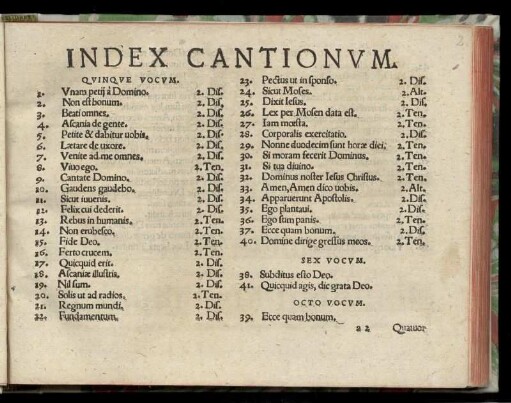 INDEX CANTIONVM.
QVINQVE VOCVM.
1. Vnam petij à Domino. 2. Dis.
2. Non est bonum. 2. Dis.
3. Beati omnes. 2. Dis.
4. Ascania de gente. 2. Dis.
5. Petite & dabitur uobis. 2. Dis.
6. Lætare de uxore. 2. Dis.
7. Venite ad me omnes. 2. Dis.
8. Viuo ego. 2. Ten.
9. Cantate Domino. 2. Dis.
10. Gaudens gaudebo. 2. Dis.
11. Sicut iuuenis. 2. Dis.
12. Felix cui dederit. 2. Dis.
13. Rebus in humanis. 2. Ten.
14. Non erubesco. 2. Ten.
15. Fide Deo. 2. Ten.
16. Ferto crucem. 2. Ten.
17. Quicquid erit. 2. Dis.
18. Ascaniæ illustris. 2. Dis.
19. Nil sum. 2. Dis.
20. Solis ut ad radios. 2. Ten.
21. Regnum mundi. 2. Dis.
22. Fundamentum. 2. Dis.
23. Pectus ut in sponso. 2. Dis.
24. Sicut Moses. 2. Alt.
25. Dixit Iesus. 2. Dis.
26. Lex per Mosen data est. 2. Ten.
27. Iam mœsta. 2. Ten.
28. Corporalis exercitatio. 2. Dis.
29. Nonne duodecim sunt horæ diei. 2. Ten.
30. Si moram fecerit Dominus. 2. Ten.
31. Si tua diuino. 2. Ten.
32. Dominus noster Iesus Christus. 2. Ten.
33. Amen, Amen dico uobis. 2. Alt.
34. Apparuerunt Apostolis. 2. Dis.
35. Ego plantaui. 2. Dis.
36. Ego sum panis. 2. Ten.
37. Ecce quam bonum. 2. Dis.
40. Domine dirige gressus meos. 2. Ten.
SEX VOCVM.
38. Subditus esto Deo.
41. Quicquid agis, dic grata Deo.
OCTO VOCVM.
39. Ecce quam bonum.
a 2 Quatuor